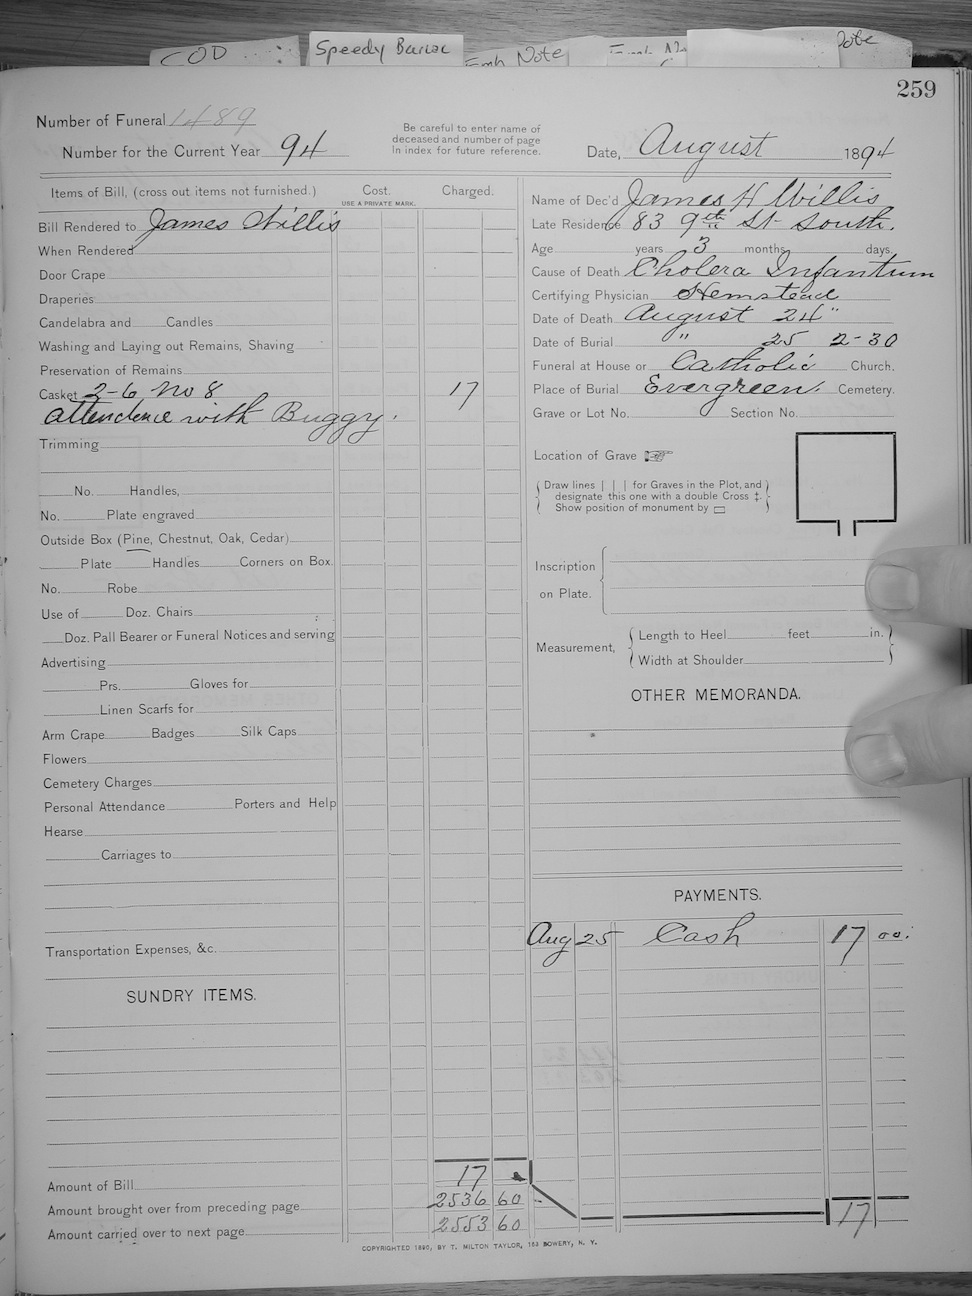 COD
Speedy Burial
Emb Note
Note
259
Number of Funeral 1489
Number for the Current Year 94
Be careful to enter name of
deceased and number of page
in index for future reference.
Date, August 1894
Items of Bill, (cross out items not furnished.) Cost. Charged.
USE A PRIVATE MARK.
Bill Rendered to James Willis
When Rendered
Door Crape
Draperies
Candelabra and Candles
Washing and Laying out Remains, Shaving
Preservation of Remains
Casket 2-6 No 8 17
attendence with Buggy.
Trimming
No. Handles,
No. Plate engraved
Outside Box (Pine, Chestnut, Oak, Cedar)
Plate Handles Corners on Box.
No. Robe
Use of Doz. Chairs
Doz. Pall Bearer or Funeral Notices and serving
Advertising
Prs. Gloves for
Linen Scarfs for
Arm Crape Badges Silk Caps
Flowers
Cemetery Charges
Personal Attendance Porters and Help
Hearse
Carriages to
Transportation Expenses, &c.
SUNDRY ITEMS.
Amount of Bill 17
Amount brought over from preceding page 2536 60
Amount carried over to next page 2553 60
Name of Dec'd James H Willis
Late Residence 83 9th St South.
Age years 3 months days.
Cause of Death Cholera Infantum
Certifying Physician Hemstead
Date of Death August 24"
Date of Burial " 25 2-30
Funeral at House or Catholic Church.
Place of Burial Evergreen. Cemetery.
Grave or Lot No. Section No.
Location of Grave ☞
Draw lines | | | for Graves in the Plot, and
designate this one with a double Cross ‡.
Show position of monument by ▭
Inscription
on Plate.
Measurement,
Length to Heel feet in.
Width at Shoulder
OTHER MEMORANDA.
PAYMENTS.
Aug 25 Cash 17 00.
17
COPYRIGHTED 1890, BY T. MILTON TAYLOR, 163 BOWERY, N. Y.